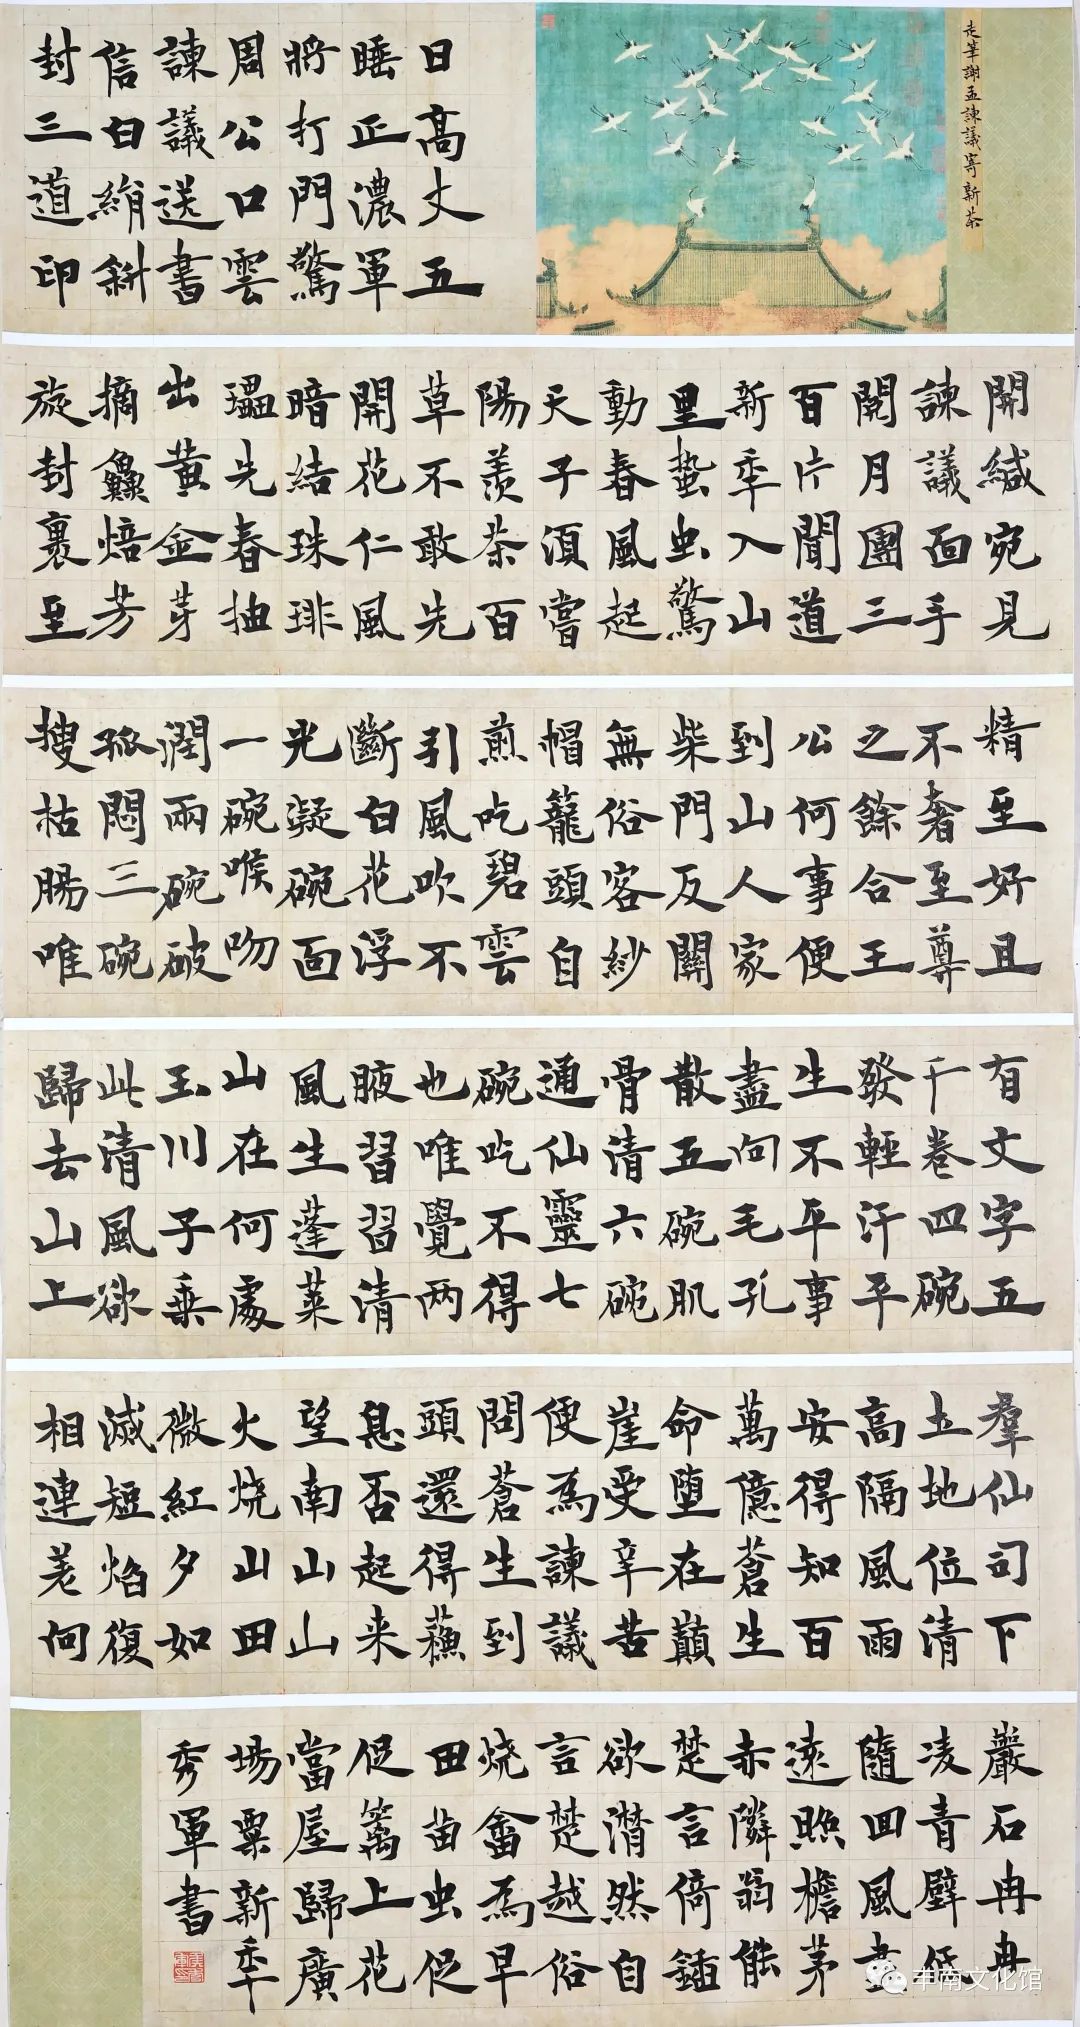 走筆謝孟諫議寄新茶
日高丈五
睡正濃軍
將打門驚
周公口雲
諫議送書
信白絹斜
封三道印
開緘宛見
諫議面手
閱月團三
百片聞道
新年入山
里蟄虫驚
動春風起
天子須嘗
陽羨茶百
草不敢先
開花仁風
暗結珠琲
瓃先春抽
出黃金芽
摘鱻焙芳
旋封裹至
精至好且
不奢至尊
之餘合王
公何事便
到山人家
柴門反關
無俗客紗
帽籠頭自
煎吃碧雲
引風吹不
斷白花浮
光凝碗面
一碗喉吻
潤兩碗破
孤悶三碗
搜枯腸唯
有文字五
千卷四碗
發輕汗平
生不平事
盡向毛孔
散五碗肌
骨清六碗
通仙靈七
碗吃不得
也唯覺两
腋習習清
風生蓬萊
山在何處
玉川子乗
此清風欲
歸去山上
羣仙司下
土地位清
高隔風雨
安得知百
萬億蒼生
命墮在巔
崖受辛苦
便為諫議
問蒼生到
頭還得蘇
息否起来
望南山山
火烧山田
微紅夕如
滅短焰復
相連差何
巖石冉冉
凌青壁低
隨回風盡
遠照檐茅
赤隣翁能
楚言倚鍤
欲潸然自
言楚越俗
烧畬為早
田苗虫促
促籬上花
當屋歸廣
場粟新年
秀軍書
丰南文化馆